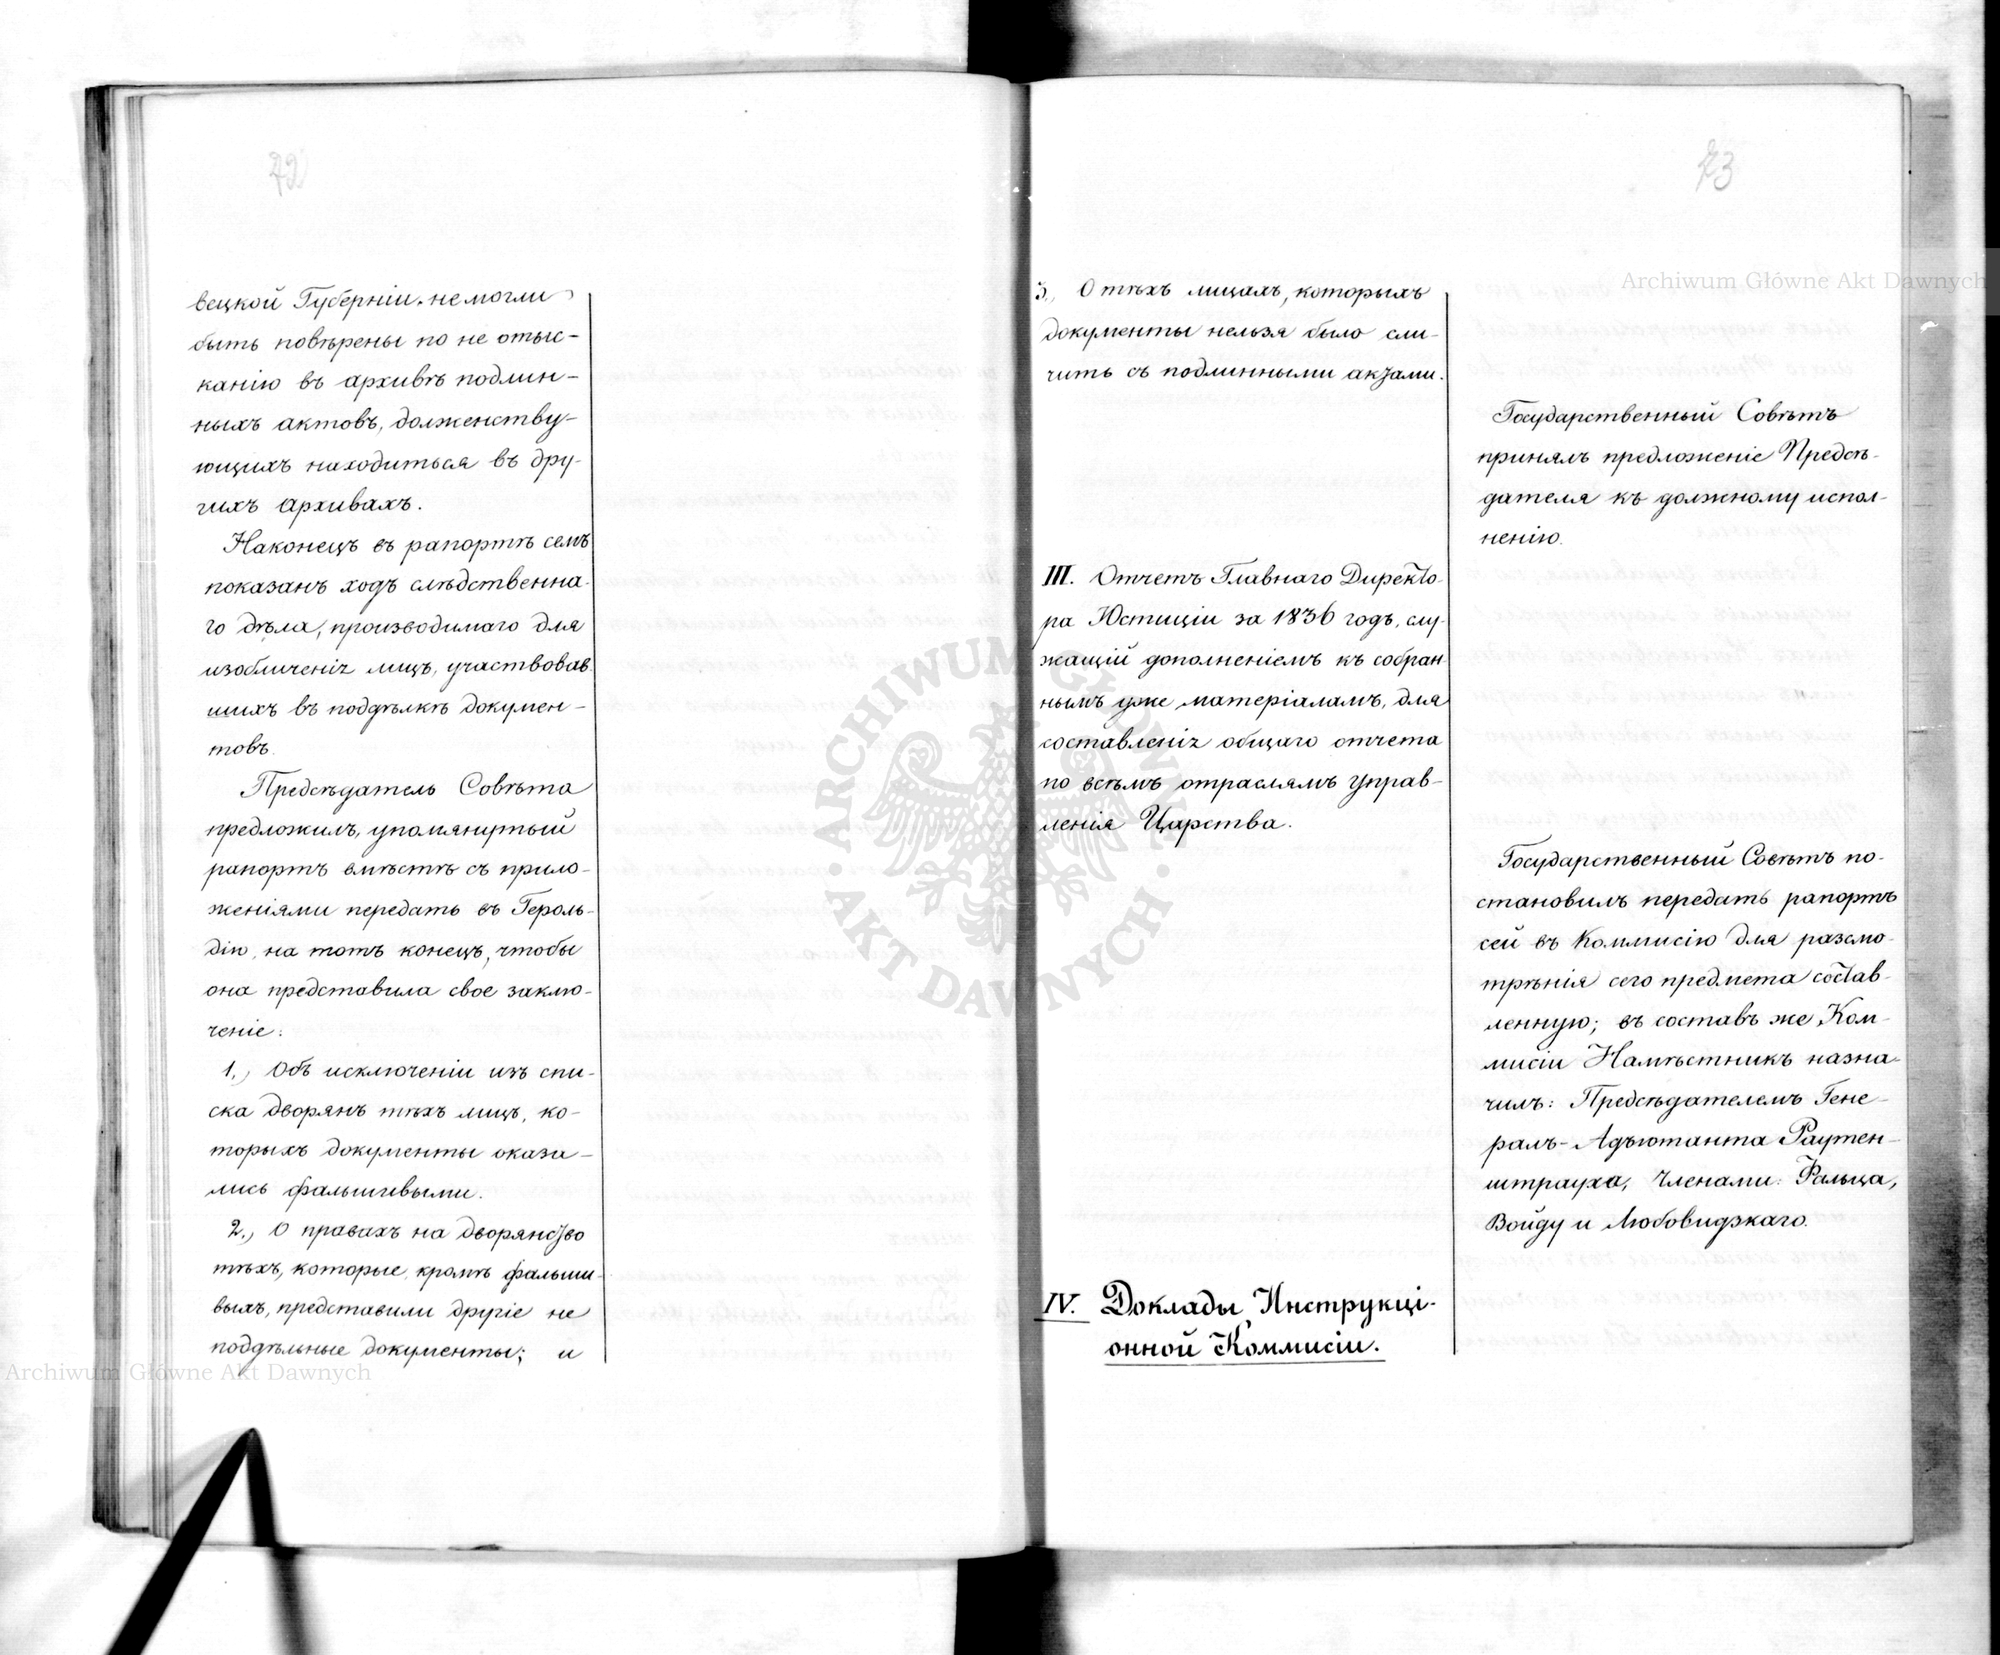 72
вецкой Губерніи. не могли
быть повѣрены по не отыс-
канію въ архивѣ подлин-
ныхъ актовъ, долженству-
ющихъ находиться въ дру-
гихъ архивахъ.
Наконецъ въ рапортѣ семъ
показанъ ходъ слѣдственна-
го дѣла, производимаго для
изобличенія лицъ, участвовав-
шихъ въ поддѣлкѣ докумен-
товъ.
Предсѣдатель Совѣта
предложилъ, упомянутый
рапортъ вмѣстѣ съ прило-
женіями передать въ Героль-
дію, на тотъ конецъ, чтобы
она представила свое заклю-
ченіе:
1., Объ исключеніи изъ спи-
ска дворянъ тѣхъ лицъ, ко-
торыхъ документы оказа-
лись фальшивыми.
2., О правахъ на дворянство
тѣхъ, которые, кромѣ фальши-
выхъ, представили другіе не
поддѣльные документы; и
73
3., О тѣхъ лицахъ, которыхъ
документы нельзя было сли-
чить съ подлинными актами.
Государственный Совѣтъ
принялъ предложеніе Предсѣ-
дателя къ должному испол-
ненію.
III. Отчетъ Главнаго Директо-
ра Юстиціи за 1836 годъ, слу-
жащій дополненіемъ къ собран-
нымъ уже матеріаламъ, для
составленія общаго отчета
по всѣмъ отраслямъ управ-
ленія Царства.
Государственный Совѣтъ по-
становилъ передать рапортъ
сей въ Коммисію для разсмо-
трѣнія сего предмета состав-
ленную; въ составъ же Ком-
мисіи Намѣстникъ назна-
чилъ: Предсѣдателемъ Гене-
ралъ-Адъютанта Раутен-
штрауха, Членами: Фальца,
Войду и Любовидзкаго.
IV. Доклады Инструкці-
онной Коммисіи.
Archiwum Główne Akt Dawnych
Archiwum Główne Akt Dawnych
ARCHIWUM GŁÓWNE · AKT DAWNYCH ·